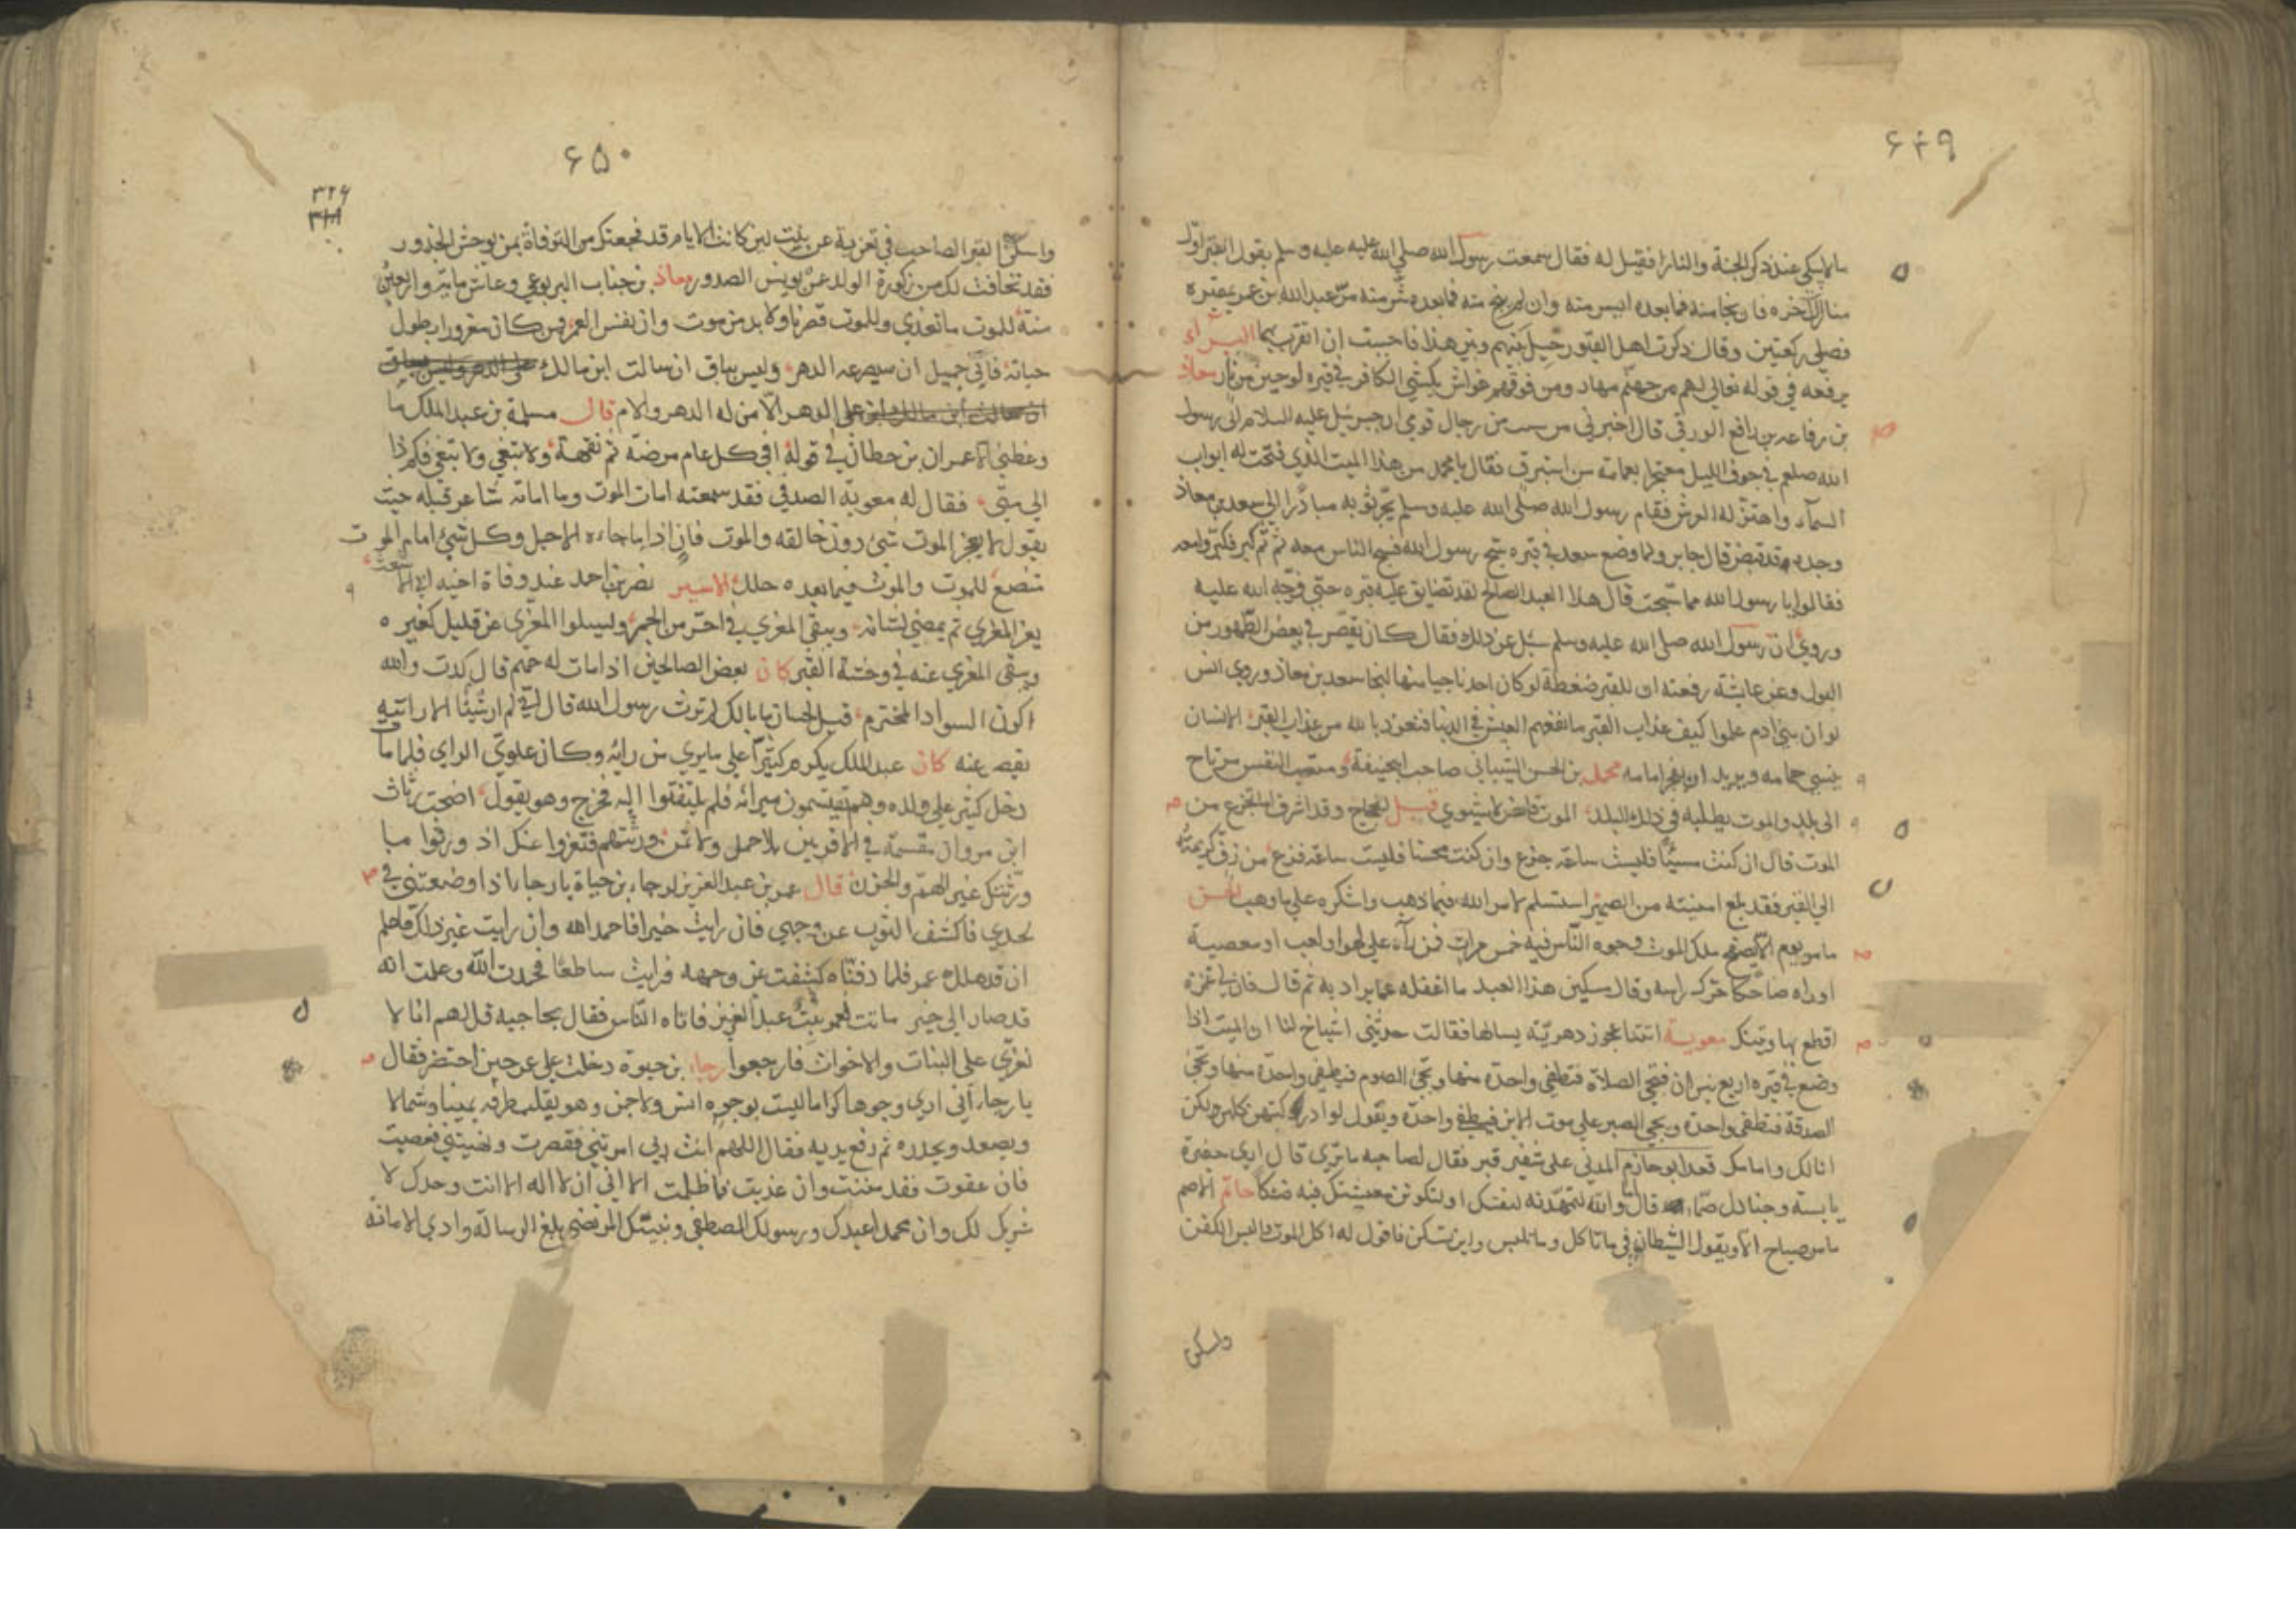 ۶۴۹
ما لا يبكي عند ذكر الجنة والنار فقيل له فقال سمعت رسول الله صلي الله عليه وسلم يقول القبر اول
منازل الاخرة فان نجا منه فما بعده ايسر منه وان لم ينج منه فما بعده شر منه مر عبد الله بن عمر بمقبرة
فصلي ركعتين وقال ذكرت اهل القبور حيل بينهم وبين هذا فاحببت ان اتقرب بهما البراء
يرفعه في قوله تعالي لهم من جهنم مهاد ومن فوقهم غواش يكسي الكافر في قبره لوحين من نار معاذ
بن رفاعه بن رافع الورقي قال اخبرني من رجال قومي ان جبرئيل عليه السلام اتي رسول
الله صلعم في جوف الليل معتجرا بعمامة من استبرق فقال يا محمد من هذا الميت الذي فتحت له ابواب
السماء واهتز له العرش فقام رسول الله صلي الله عليه وسلم يجر ثوبه مبادرا الي سعد بن معاذ
وجده قد قبض قال جابر ولما وضع سعد في قبره سبح رسول الله فسبح الناس معه ثم كبر فكبروا معه
فقالوا يا رسول الله مما سبحت قال هذا العبد الصالح لقد تضايق عليه قبره حتي فرجه الله عليه
وروي ان رسول الله صلي الله عليه وسلم سئل عن ذلك فقال كان يقصر في بعض الطهور من
البول وعن عايشة رفعته ان للقبر ضغطة لو كان احد ناجيا منها لنجا سعد بن معاذ وروي انس
لو ان بني ادم علموا كيف عذاب القبر ما نفعهم العيش في الدنيا فتعوذ بالله من عذاب القبر الانسان
ينسي حمامه ويريد ان يفجر امامه محمد بن الحسن الشيباني صاحب ابي حنيفة
الي بلد والموت يطلبه في ذلك البلد الموت قيل للحجاج وقد اشرف الجزع من
الموت قال ان كنت مسيئا فليست ساعة جزع وان كنت محسنا فليست ساعة فزع من زف كريمته
الي القبر فقد بلغ امنيته من الصهر استسلم لامر الله فيما ذهب واشكره علي ما وهب الحسن
ما من يوم الا يتصفح ملك الموت وجوه الناس فيه خمس مرات فمن رآه علي لهو او لعب او معصية
او راه ضاحكا حرك راسه وقال مسكين هذا العبد ما اغفله عما يراد به ثم قال
اقطع بها وتينك معوية اتتنا عجوز دهرية يسالها فقالت حدثني اشياخ لنا ان الميت اذا
وضع في قبره اربع نيران فتجي الصلاة فتطفي واحدة منها ويجئ الصوم فيطفي واحدة منها وتجئ
الصدقة فتطفي واحدة ويجي الصبر علي موت الابن فيطفي واحدة ويقول لو ادركتهن
قعد ابو حازم المدني علي شفير قبر فقال لصاحبه ما تري قال اري حفرة
يابسة وجنادل صماء قال اما والله لتمهدنه لنفسك او لتكونن معيشتك فيه ضنكا حاتم الاصم
ما من صباح الا ويقول الشيطان لي ما تاكل وما تلبس واين تسكن فاقول له اكل الموت والبس الكفن
واسكن
۶۵۰
۳۲۶
واسكن القبر الصاحب في تعزية عن بنت لين كانت الايام قد فجعتك من التوفاة بمن يوحش الخدور
فقد تجافت لك من ذكورة الولد عمن يونس الصدور معاذ بن جناب اليربوعي وعاش مايتين واربعين
سنة للموت ما نغدي وللموت قصرنا ولا بد من موت وان نفس العمر فمن كان مغرورا بطول
حياته فاني حميل ان سيصرعه الدهر وليس بباق ان سالت ابن مالك
علي الدهر الا من له الدهر والامر قال مسلمة بن عبد الملك ما
وعظني الا عمران بن حطان في قوله افي كل عام مرضة ثم نقهة ولا تبغي ولا تبغي فكم ذا
الي متي فقال له معوية الصدفي فقد سمعته امات الموت وما اماته شاعر قبله حيث
يقول لا يعجز الموت شئ دون خالقه والموت فان اذا ما جاءه الاجل وكل شئ امام الموت
متضع للموت والموت فيما بعده جلل الامير نصر بن احمد عند وفاة اخيه ابي الاشعث
يعز المعزي ثم يمضي لشانه ويبقي المعزي في احر من الجمر وليسلوا المعزي عن قليل كغيره
ويبقي المعزي عنه في وحشة القبر كان بعض الصالحين اذا مات له حميم قال كدت والله
اكون السواد المخترم قيل لحسان ما بالك لم ترث رسول الله قال لاني لم ار شيئا الا رايته
يقصر عنه كان عبد الملك يكرم كثيرا علي ما يري من رايه وكان علوي الراي فلما مات
دخل كثير علي ولده وهم يقتسمون ميراثه فلم يلتفتوا اليه فخرج وهو يقول اضحت تراث
ابن مروان مقسمة في الاقربين بلا حمل ولا ثمن ورثتهم فتعزوا عنك اذ ورثوا مبا
ورثتك غير الهم والحزن قال عمر بن عبد العزيز لرجاء بن حياة يا رجاء اذا وضعتني في
لحدي فاكشف الثوب عن وجهي فان رايت خيرا فاحمد الله وان رايت غير ذلك فاعلم
ان قد هلك عمر فلما دفناه كشفت عن وجهه فرايت ساطعا فحمدت الله وعلمت انه
قد صار الي خير ماتت لعمر بن عبد العزيز فاتاه الناس فقال لحاجبه قل لهم انا لا
نعزي علي البنات والاخوات فارجعوا رجاء بن حيوة دخلت علي عمر حين احتضر فقال
يا رجاء اني اري وجوها كراما ليست بوجوه انس ولا جن وهو يقلب طرفه يمينا وشمالا
ويصعد ويحدره ثم رفع يديه فقال اللهم انت ربي امرتني فقصرت ونهيتني فعصيت
فان عفوت فقد مننت وان عذبت فما ظلمت الا اني ان لا اله الا انت وحدك لا
شريك لك وان محمدا عبدك ورسولك المصطفي ونبيك المرتضي بلغ الرسالة وادي الامانة